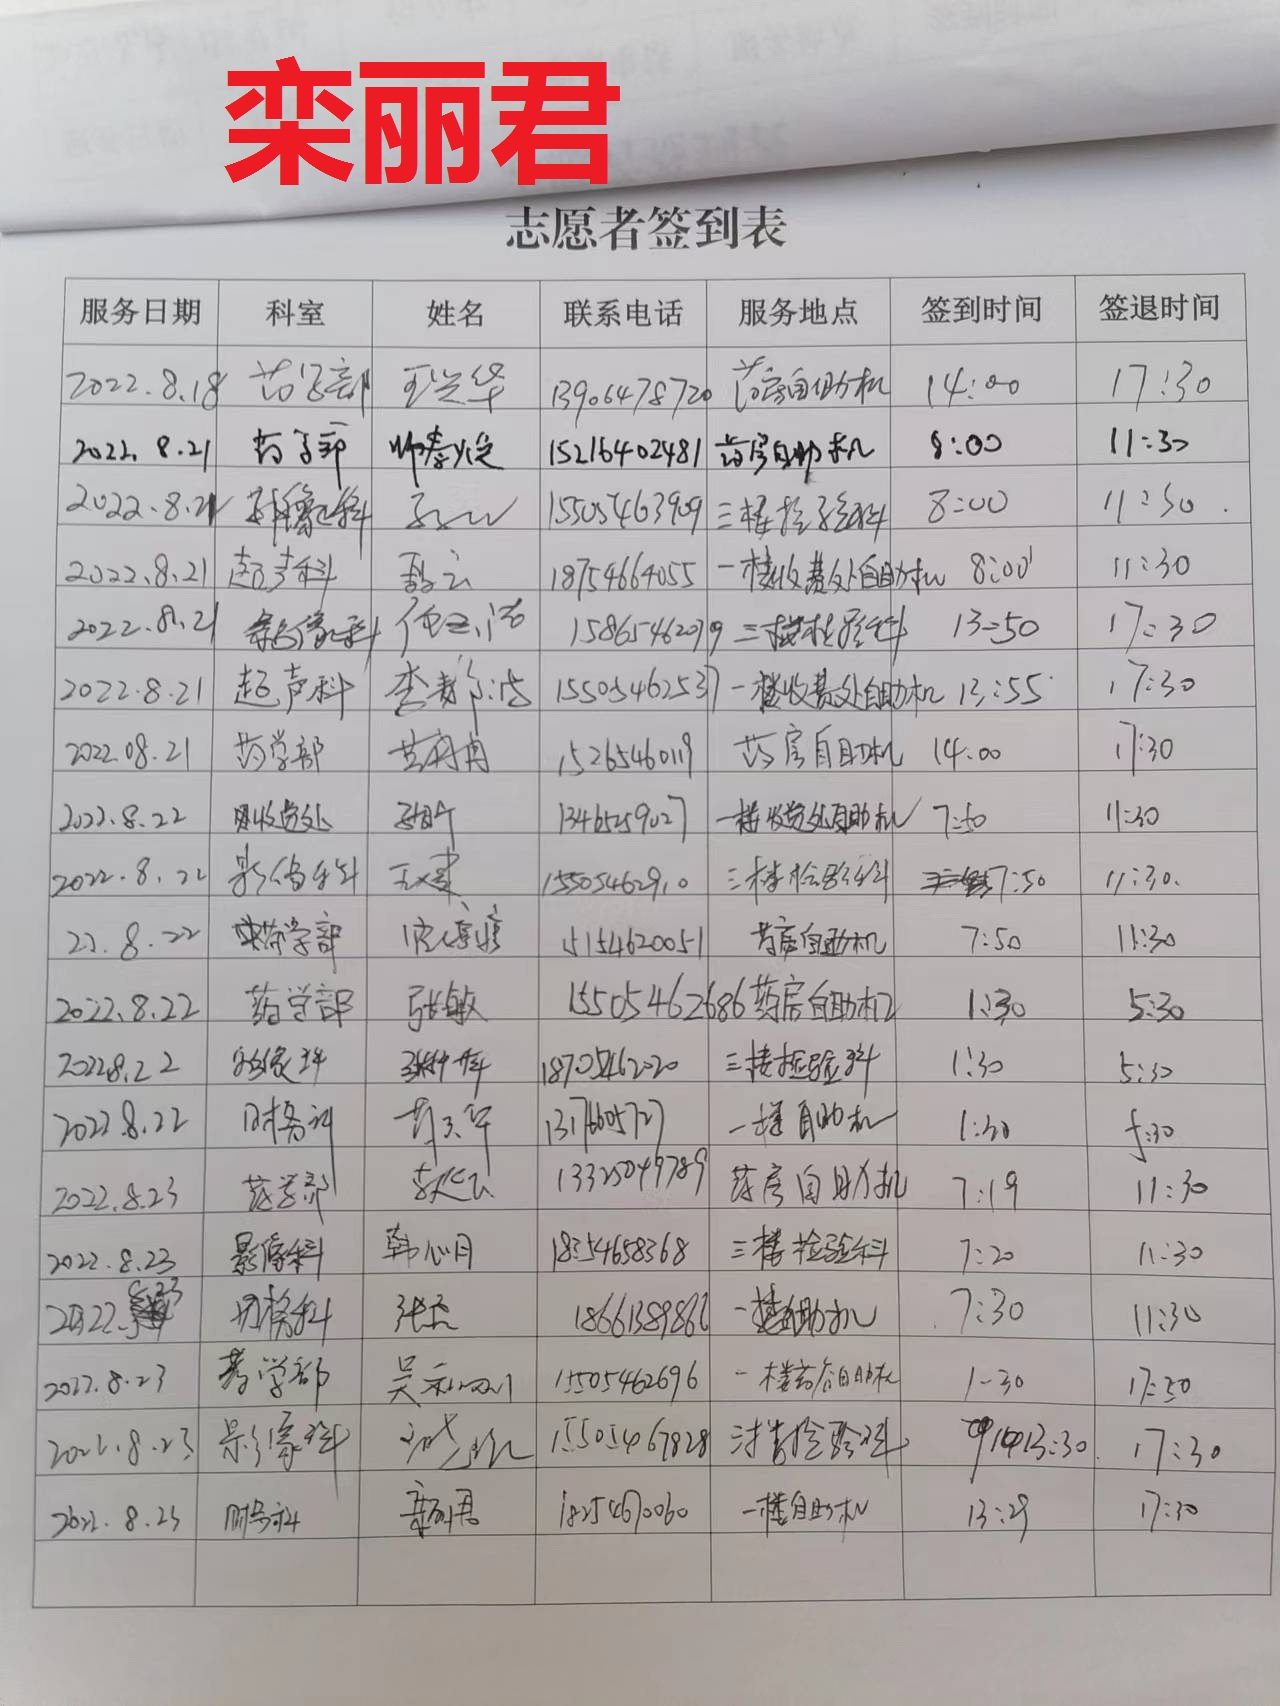 栾丽君
志愿者签到表
服务日期 科室 姓名 联系电话 服务地点 签到时间 签退时间
2022.8.18 药学部 王兴华 13906478720 药房自助机 14:00 17:30
2022.8.21 药学部 15216402481 药房自助机 8:00 11:30
2022.8.21 影像科 15505463909 三楼检验科 8:00 11:30
2022.8.21 超声科 18754664055 一楼收费处自助机 8:00 11:30
2022.8.21 影像科 15865462079 三楼检验科 13:50 17:30
2022.8.21 超声科 15505462537 一楼收费处自助机 13:55 17:30
2022.08.21 药学部 15265460119 药房自助机 14:00 17:30
2022.8.22 收费处 13465259027 一楼收费处自助机 7:50 11:30
2022.8.22 影像科 15505462910 三楼检验科 7:50 11:30.
22.8.22 药学部 15154620051 药房自助机 7:50 11:30
2022.8.22 药学部 张敏 15505462686 药房自助机 1:30 5:30
2022.8.22 影像科 18705462020 三楼检验科 1:30 5:30
2022.8.22 财务科 13176605727 一楼自助机 1:30 5:30
2022.8.23 药学部 13325049789 药房自助机 7:19 11:30
2022.8.23 影像科 韩心月 18354658368 三楼检验科 7:20 11:30
2022.8.23 财务科 张杰 18661389866 一楼自助机 7:30 11:30
2022.8.23 药学部 15505462696 一楼药房自助机 1-30 17:30
2022.8.23 影像科 15505467828 检验科 13:30 17:30
2022.8.23 财务科 栾丽君 18254670060 一楼自助机 13:29 17:30